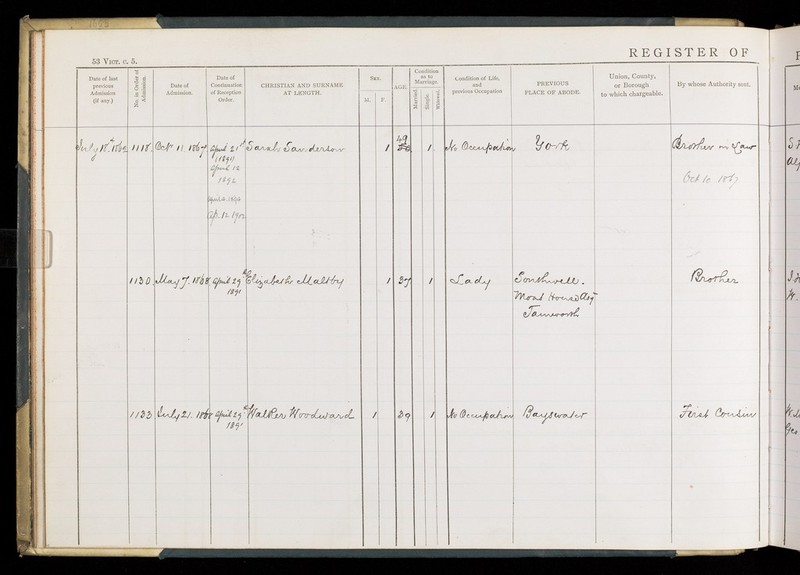 53 VICT. c. 5.
REGISTER OF
Date of last previous Admission (if any.)
No. in Order of Admission.
Date of Admission.
Date of Continuation of Reception Order.
CHRISTIAN AND SURNAME AT LENGTH.
Sex.
M.
F.
AGE.
Condition as to Marriage.
Married.
Single.
Widowed.
Condition of Life, and previous Occupation
PREVIOUS PLACE OF ABODE.
Union, County, or Borough to which chargeable.
By whose Authority sent.
July 18th 1862 1118 Oct 11. 1867 April 21st Sarah Saunderson 1 49 1 No Occupation York Brother in Law
(1891)
April 12
1892
Oct 10 1867
April 16. 1894
Ap. 12 1902
1130 May 7. 1868 April 29th Elizabeth Maltby 1 37 1 Lady Southwell. Brother
1891
Moat House Asy
Tamworth
1133 July 21. 1868 April 29th Walker Woodward 1 39 1 No Occupation Bayswater First Cousin
1891